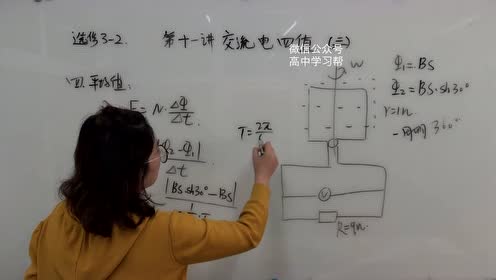 选修3-2. 第十一讲 交流电四值 (三)
微信公众号
高中学习帮
四. 平均值:
E = N·ΔΦ/Δt
Φ₂-Φ₁|
Δt
|BS·sin30°-BS|
T=2π/
ω
Φ₁=BS
Φ₂=BS·sin30°
r=1Ω
一周期 360°
V
R=9Ω